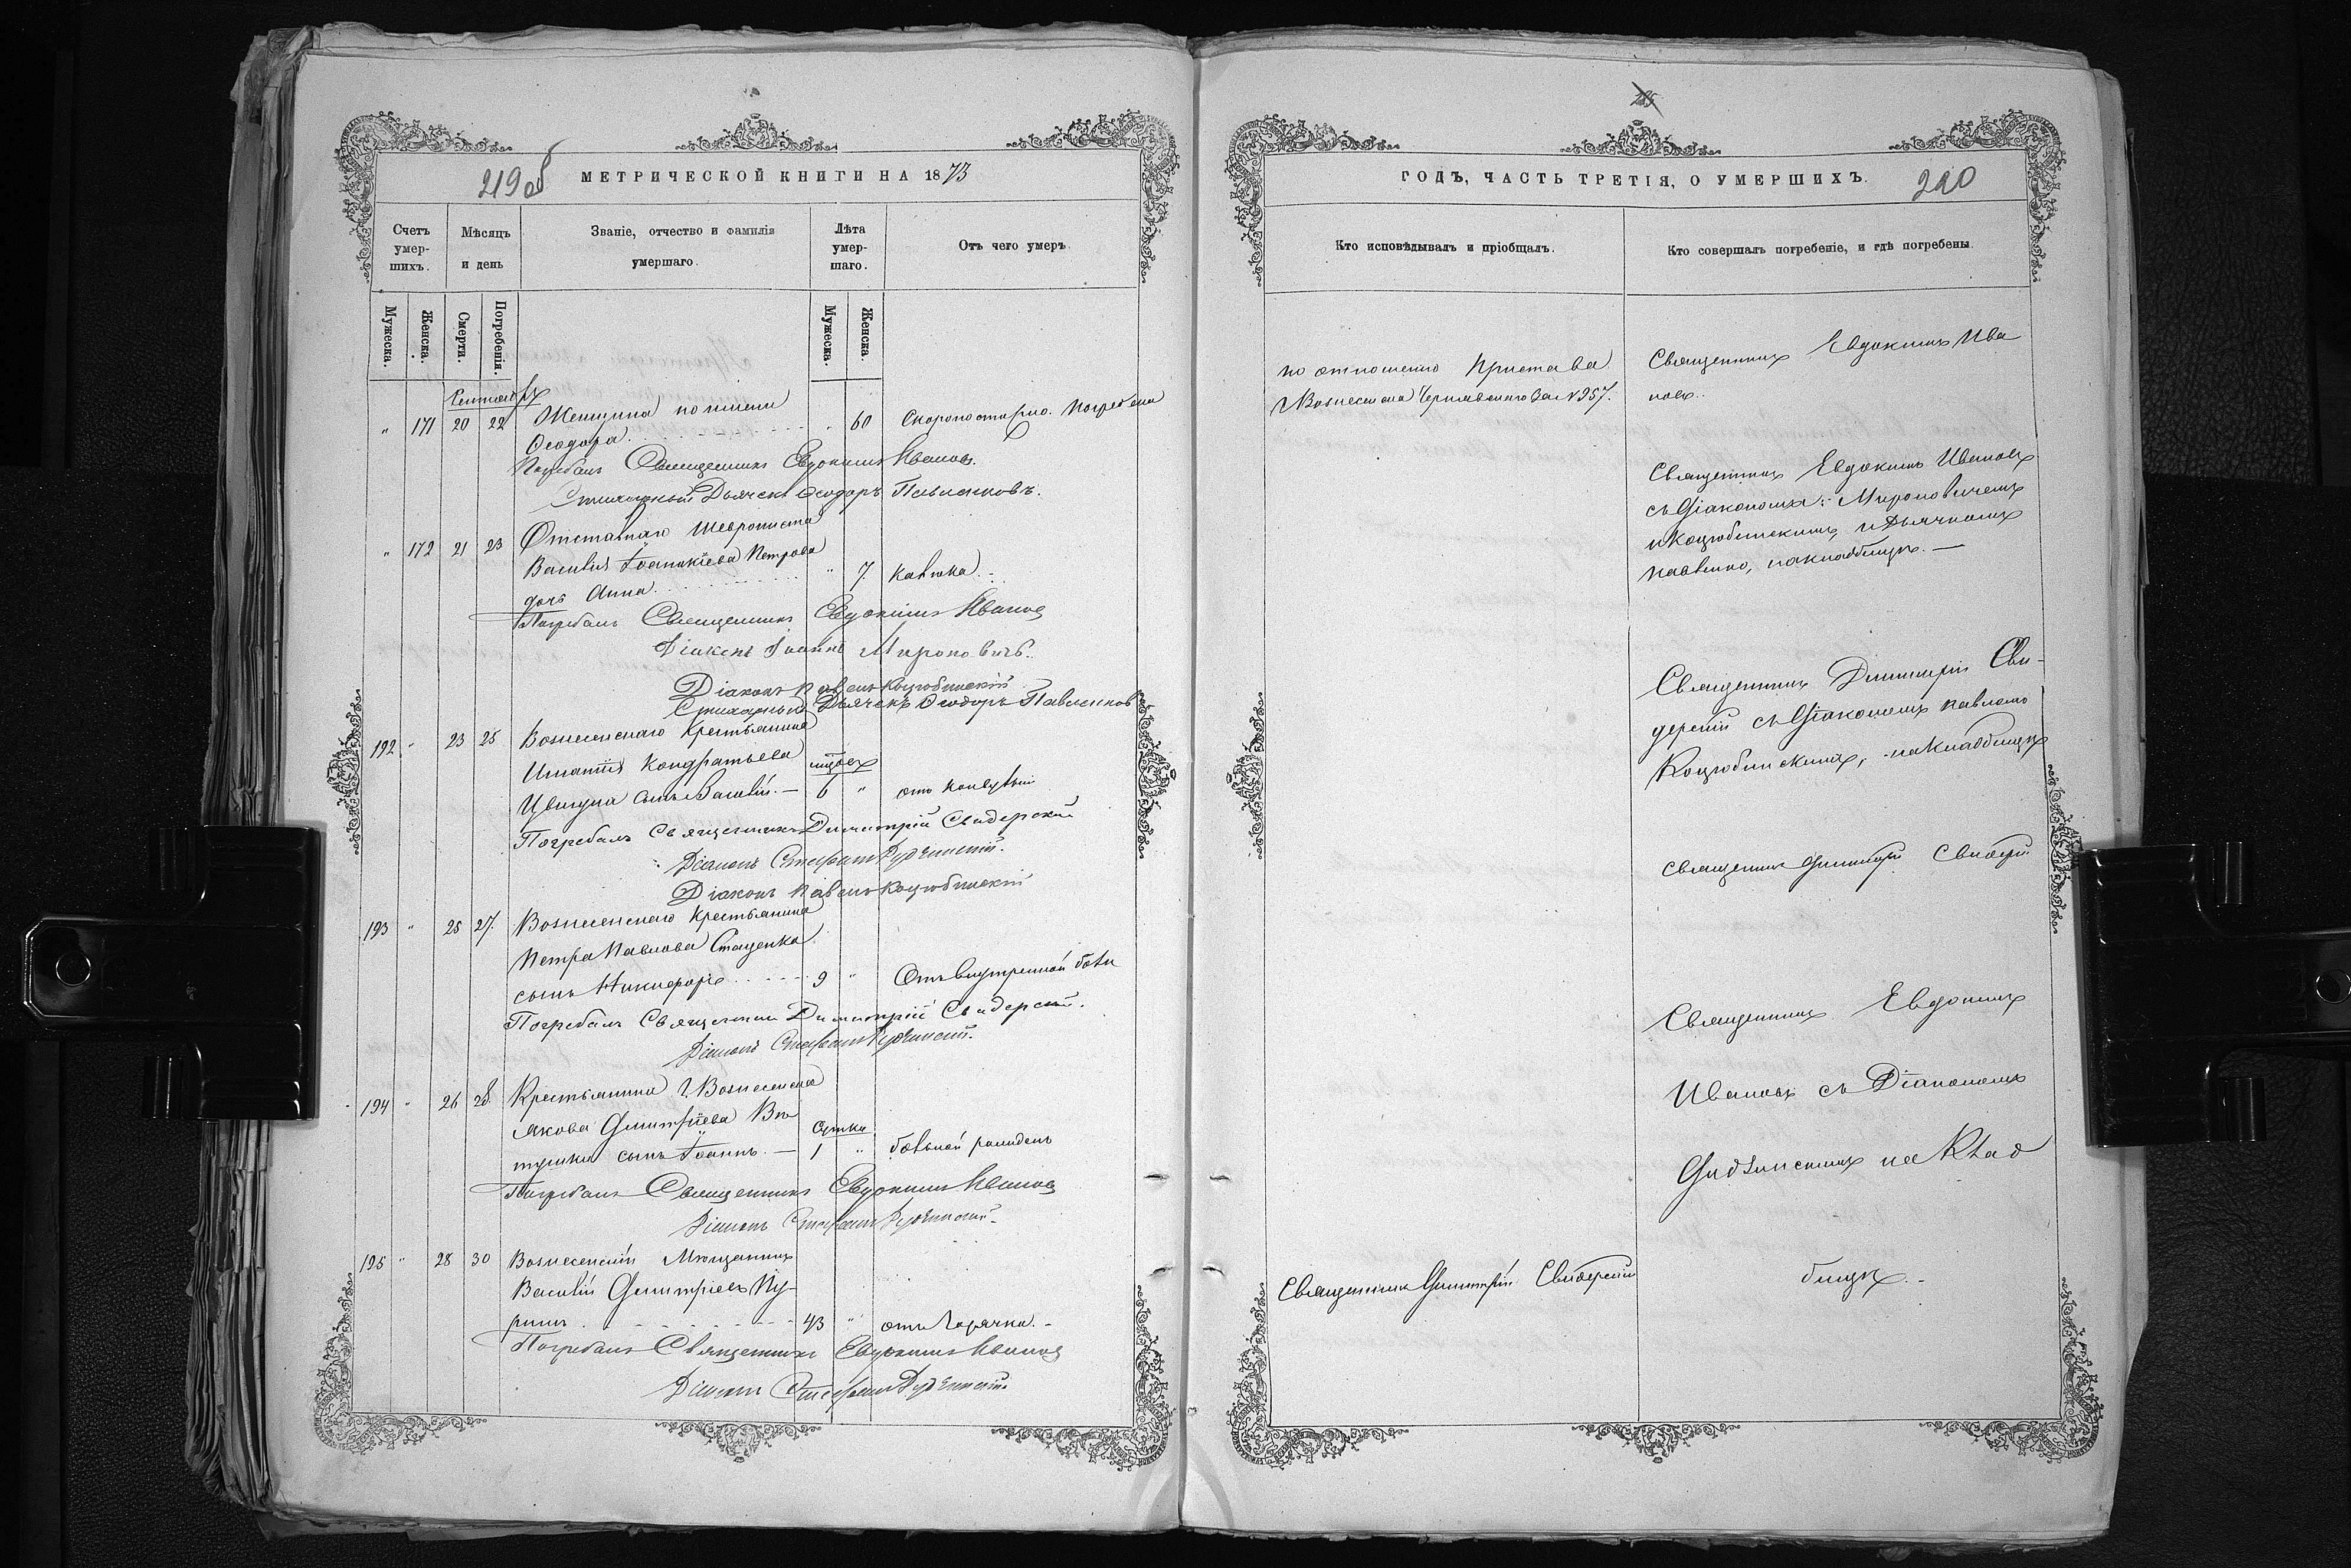 219об МЕТРИЧЕСКОЙ КНИГИ НА 1873
Счетъ умер-шихъ.
Мѣсяцъ и день
Званіе, отчество и фамилія умершаго.
Лѣта умер-шаго.
Отъ чего умеръ
Мужеска.
Женска.
Смерти.
Погребенія.
Мужеска.
Женска.
Сентябрь
" 171 20 22 Женщина по имени
Ѳеодора " 60 Скоропостижно. Погребена
Погребалъ Священникъ Евдокимъ Ивановъ.
Стихарный Дьячекъ Ѳеодоръ Павленковъ.
" 172 21 23 Отставнаго
Василія Іоаникіева Петрова
дочь Анна " 7
Погребалъ Священникъ Евдокимъ Ивановъ
Діаконъ Іоаннъ Мироновичъ.
Діаконъ Павелъ Коцюбинскій
Стихарный Дьячекъ Ѳеодоръ Павленковъ
192 " 23 25 Вознесенскаго Крестьянина
Игнатія Кондратьева
сынъ Василій. — 6 "
Погребалъ Священникъ Димитрій Свидерскій
Діаконъ Стефанъ
Діаконъ Павелъ Коцюбинскій
193 " 25 27. Вознесенскаго Крестьянина
Петра Павлова Стаценка
сынъ Никифоръ 9 " Отъ внутренной боли
Погребалъ Священникъ Димитрій Свидерскій.
Діаконъ Стефанъ
194 " 26 28. Крестьянина г. Вознесенска
Якова Димитріева
сутки
сынъ Іоаннъ. — 1 "
Погребалъ Священникъ Евдокимъ Ивановъ
Діаконъ Стефанъ
195 " 28 30 Вознесенскій Мѣщанинъ
Василій Димитріевъ Пу-
ринъ 43 " отъ Горячки. -
Погребалъ Священникъ Евдокимъ Ивановъ
Діаконъ Стефанъ
285
ГОДЪ, ЧАСТЬ ТРЕТІЯ, О УМЕРШИХЪ. 220
Кто исповѣдывалъ и пріобщалъ.
Кто совершалъ погребеніе, и гдѣ погребены.
по отношенію Пристава
г. Вознесенска за № 957.
Священникъ Евдокимъ Ива
новъ.
Священникъ Евдокимъ Ивановъ
съ Діакономъ: Мироновичемъ
и Коцюбинскимъ, и Дьячкомъ
на кладбищѣ. —
Священникъ Димитрій Сви-
дерскій съ Діакономъ Павломъ
Коцюбинскимъ, на Кладбищѣ
Священникъ Димитрій Свидерскій
Священникъ Евдокимъ
Ивановъ съ Діакономъ
на Клад
бищѣ. -
Священникъ Димитрій Свидерскій